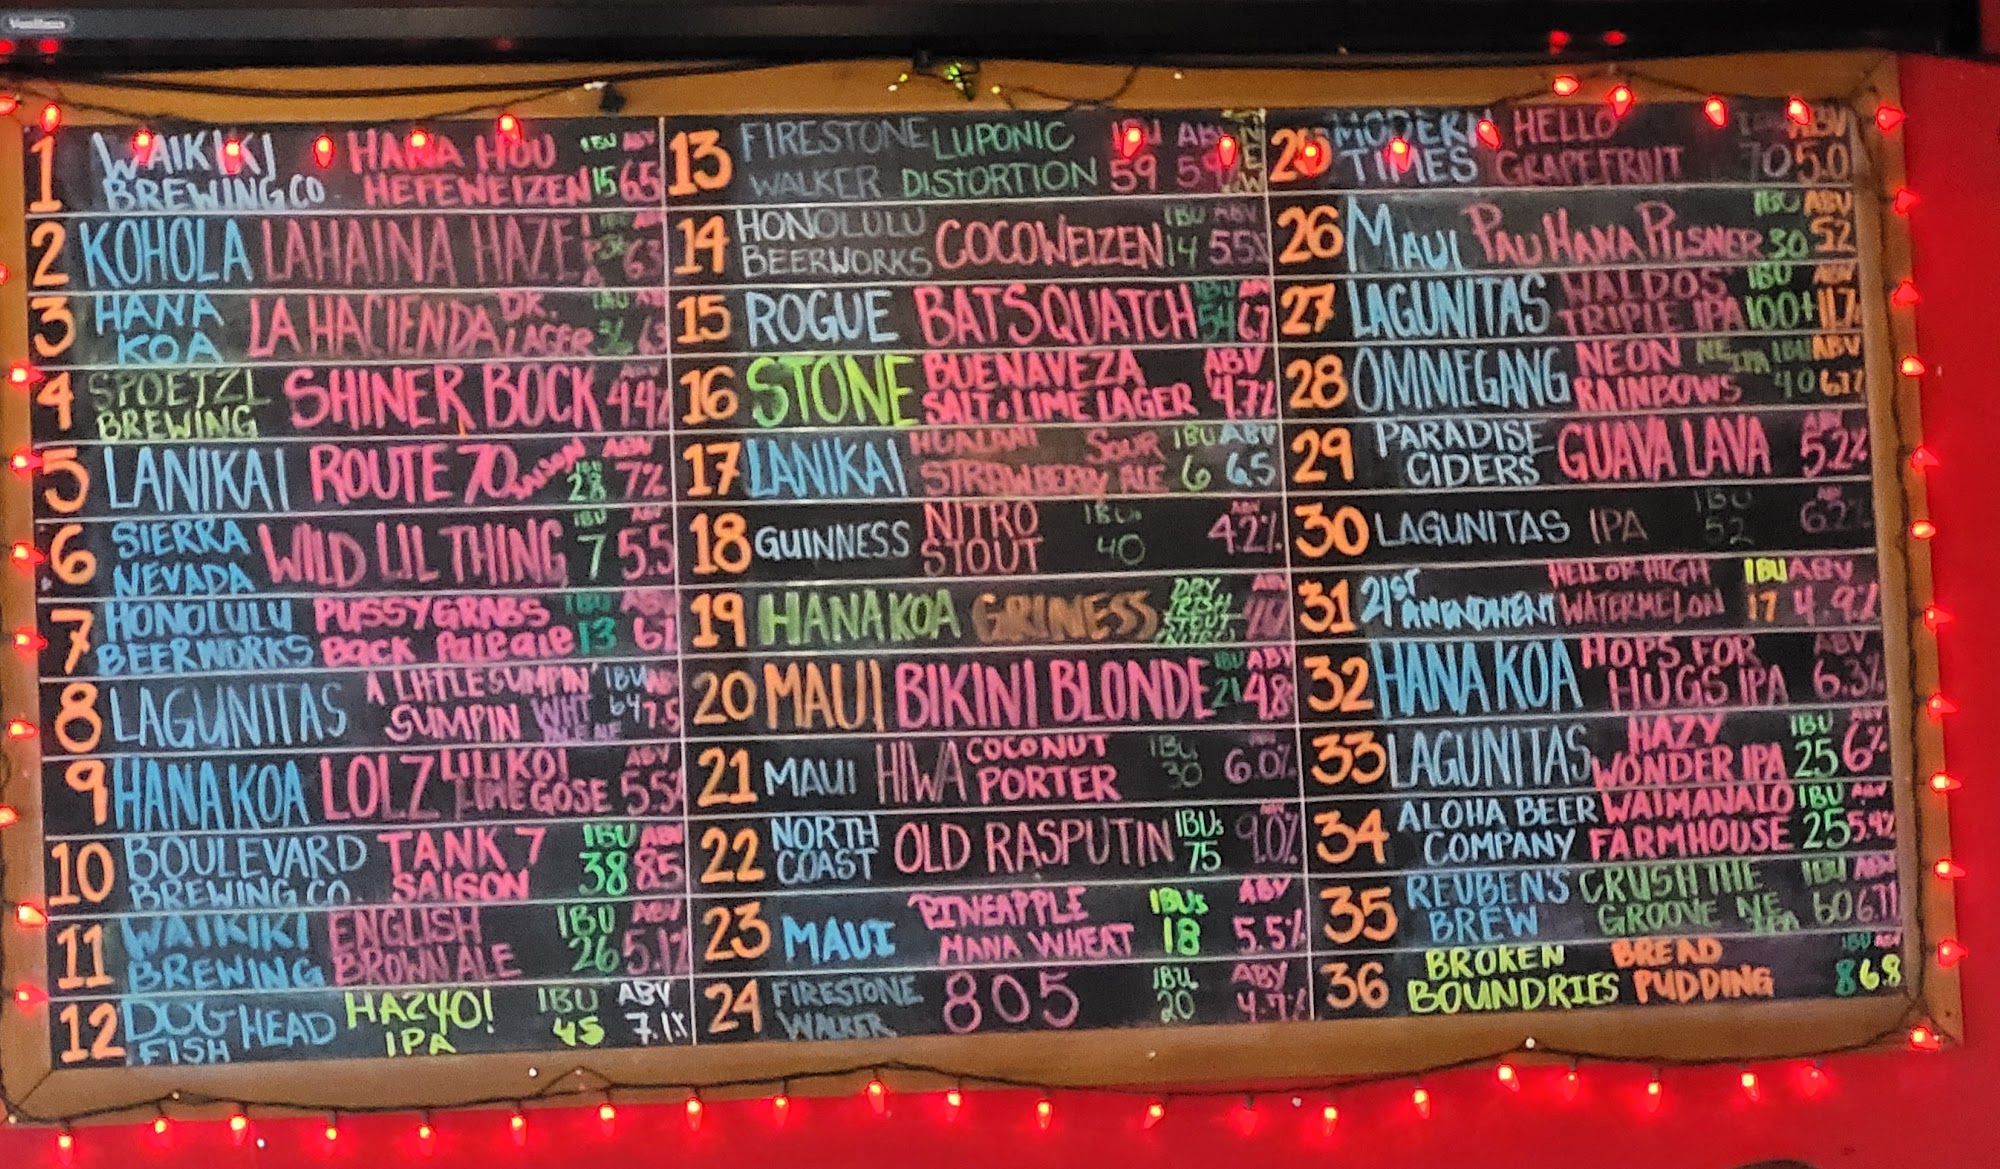 1 WAIKIKI BREWING CO. HANA HOU HEFEWEIZEN IBU 15 ABV 6.5
2 KOHOLA LAHAINA HAZE IPA 63
3 HANA KOA LA HACIENDA DR. LAGER
4 SPOETZL BREWING SHINER BOCK ABV 4.4%
5 LANIKAI ROUTE 70 SAISON IBU 28 ABV 7%
6 SIERRA NEVADA WILD LIL THING IBU 7 ABV 5.5
7 HONOLULU BEERWORKS PUSSYGRABS BACK PaleaLe IBU 13 ABV 6%
8 LAGUNITAS A LITTLE SUMPIN' SUMPIN WHT PALE ALE IBU 64 ABV 7.5
9 HANA KOA LOLZ LILIKOI LIME GOSE ABV 5.5%
10 BOULEVARD BREWING CO. TANK 7 SAISON IBU 38 ABV 8.5
11 WAIKIKI BREWING ENGLISH BROWN ALE IBU 26 ABV 5.1%
12 DOG FISH HEAD HAZYO! IPA IBU 45 ABV 7.1%
13 FIRESTONE WALKER LUPONIC DISTORTION IBU 59 ABV 59
14 HONOLULU BEERWORKS COCOWEIZEN IBU 14 ABV 5.5%
15 ROGUE BATSQUATCH IBU 54 67
16 STONE BUENAVEZA SALT & LIME LAGER ABV 4.7%
17 LANIKAI HUALANI STRAWBERRY SOUR ALE IBU 6 ABV 6.5
18 GUINNESS NITRO STOUT IBUs 40 ABV 4.2%
19 HANA KOA GRINESS DRY IRISH STOUT (NITRO) ABV
20 MAUI BIKINI BLONDE IBU 21 ABV 4.8
21 MAUI HIWA COCONUT PORTER IBU 30 6.0%
22 NORTH COAST OLD RASPUTIN IBUs 75 ABV 9.0%
23 MAUI PINEAPPLE MANA WHEAT IBUs 18 ABV 5.5%
24 FIRESTONE WALKER 805 IBU 20 ABV 4.7%
25 MODERN TIMES HELLO GRAPEFRUIT 70 ABV 5.0
26 MAUI PAU HANA PILSNER IBU 30 ABV 52
27 LAGUNITAS WALDOS' TRIPLE IPA IBU 100+ ABV 11.7
28 OMMEGANG NEON RAINBOWS NE IPA IBU 40 ABV 6.7%
29 PARADISE CIDERS GUAVA LAVA ABV 5.2%
30 LAGUNITAS IPA IBU 52 ABV 6.2%
31 21ST AMENDMENT HELL OR HIGH WATERMELON IBU 17 ABV 4.9%
32 HANA KOA HOPS FOR HUGS IPA ABV 6.3%
33 LAGUNITAS HAZY WONDER IPA IBU 25 ABV 6%
34 ALOHA BEER COMPANY WAIMANALO FARMHOUSE IBU 25 ABV 5.4%
35 REUBEN'S BREW CRUSH THE GROOVE NE IPA IBU 60
36 BROKEN BOUNDRIES BREAD PUDDING IBU 8 ABV 6.8